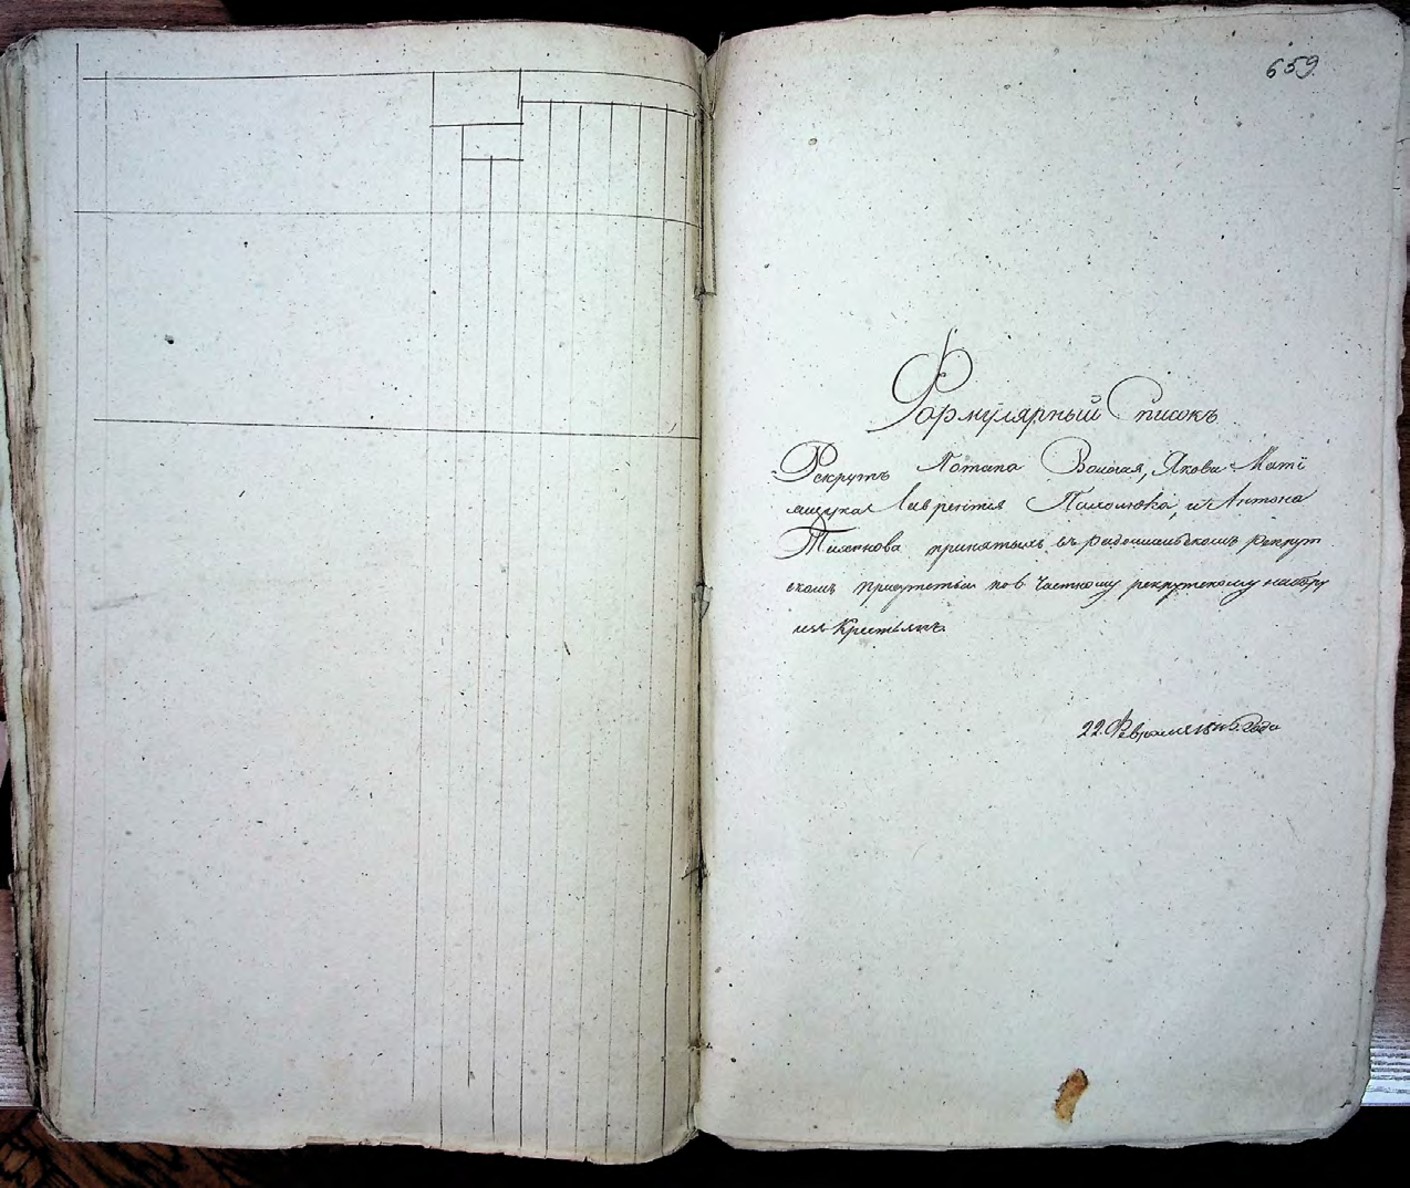 659.
Формулярный Списокъ
Рекрутъ Потапа Якова Мати
ащука Лаврентія и Антона
принятыхъ въ радомысльскомъ рекрут
скомъ присутствіи по 6 Частному рекрутскому набору
изъ Крестьянъ.
22. Февраля года